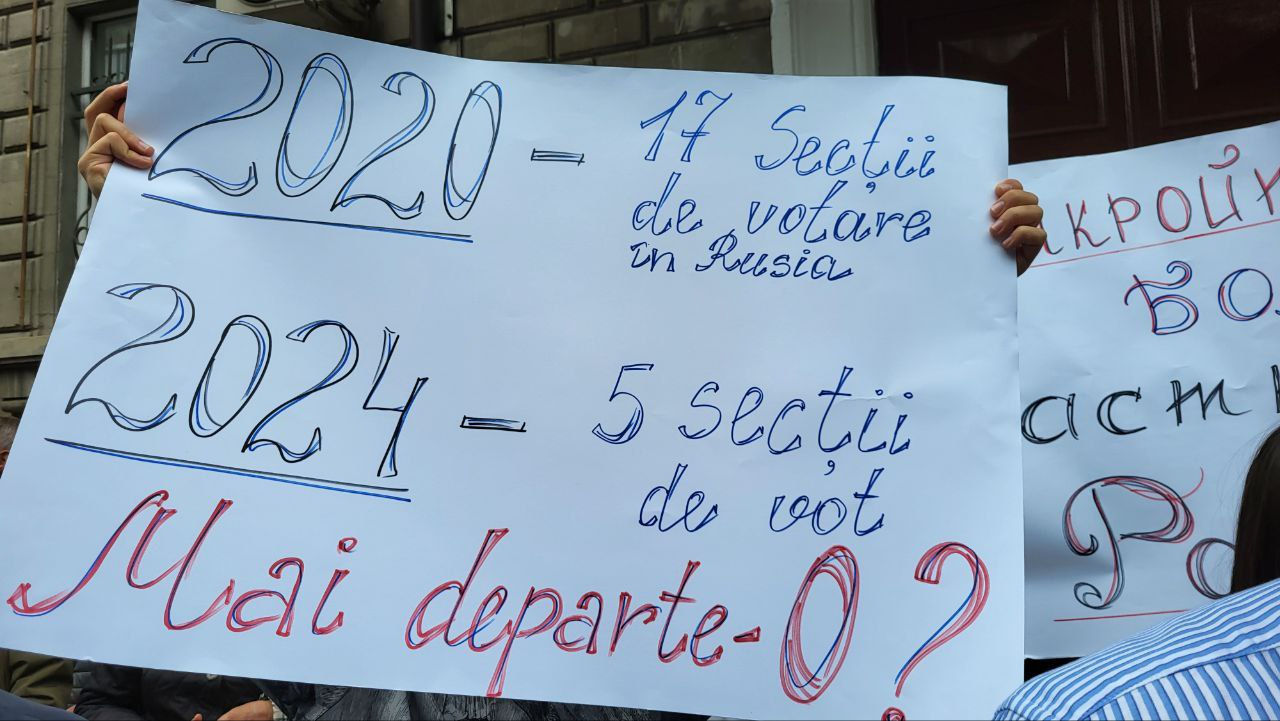 2020 - 17 Secții
de votare
în Rusia
2024 - 5 secții
de vot
Mai departe - 0?
КРОЙ
БО
аст
Ро